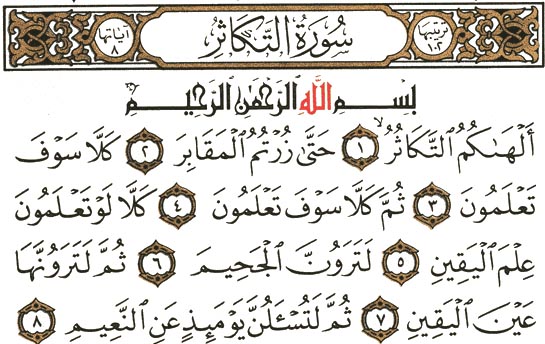 ترتيبها ١٠٢ سُورَةُ التَّكَاثُرِ آياتها ٨
بِسْمِ اللَّهِ الرَّحْمَٰنِ الرَّحِيمِ
أَلْهَىٰكُمُ ٱلتَّكَاثُرُ ۙ ١ حَتَّىٰ زُرْتُمُ ٱلْمَقَابِرَ ٢ كَلَّا سَوْفَ
تَعْلَمُونَ ٣ ثُمَّ كَلَّا سَوْفَ تَعْلَمُونَ ٤ كَلَّا لَوْ تَعْلَمُونَ
عِلْمَ ٱلْيَقِينِ ٥ لَتَرَوُنَّ ٱلْجَحِيمَ ٦ ثُمَّ لَتَرَوُنَّهَا
عَيْنَ ٱلْيَقِينِ ٧ ثُمَّ لَتُسْـَٔلُنَّ يَوْمَئِذٍ عَنِ ٱلنَّعِيمِ ٨